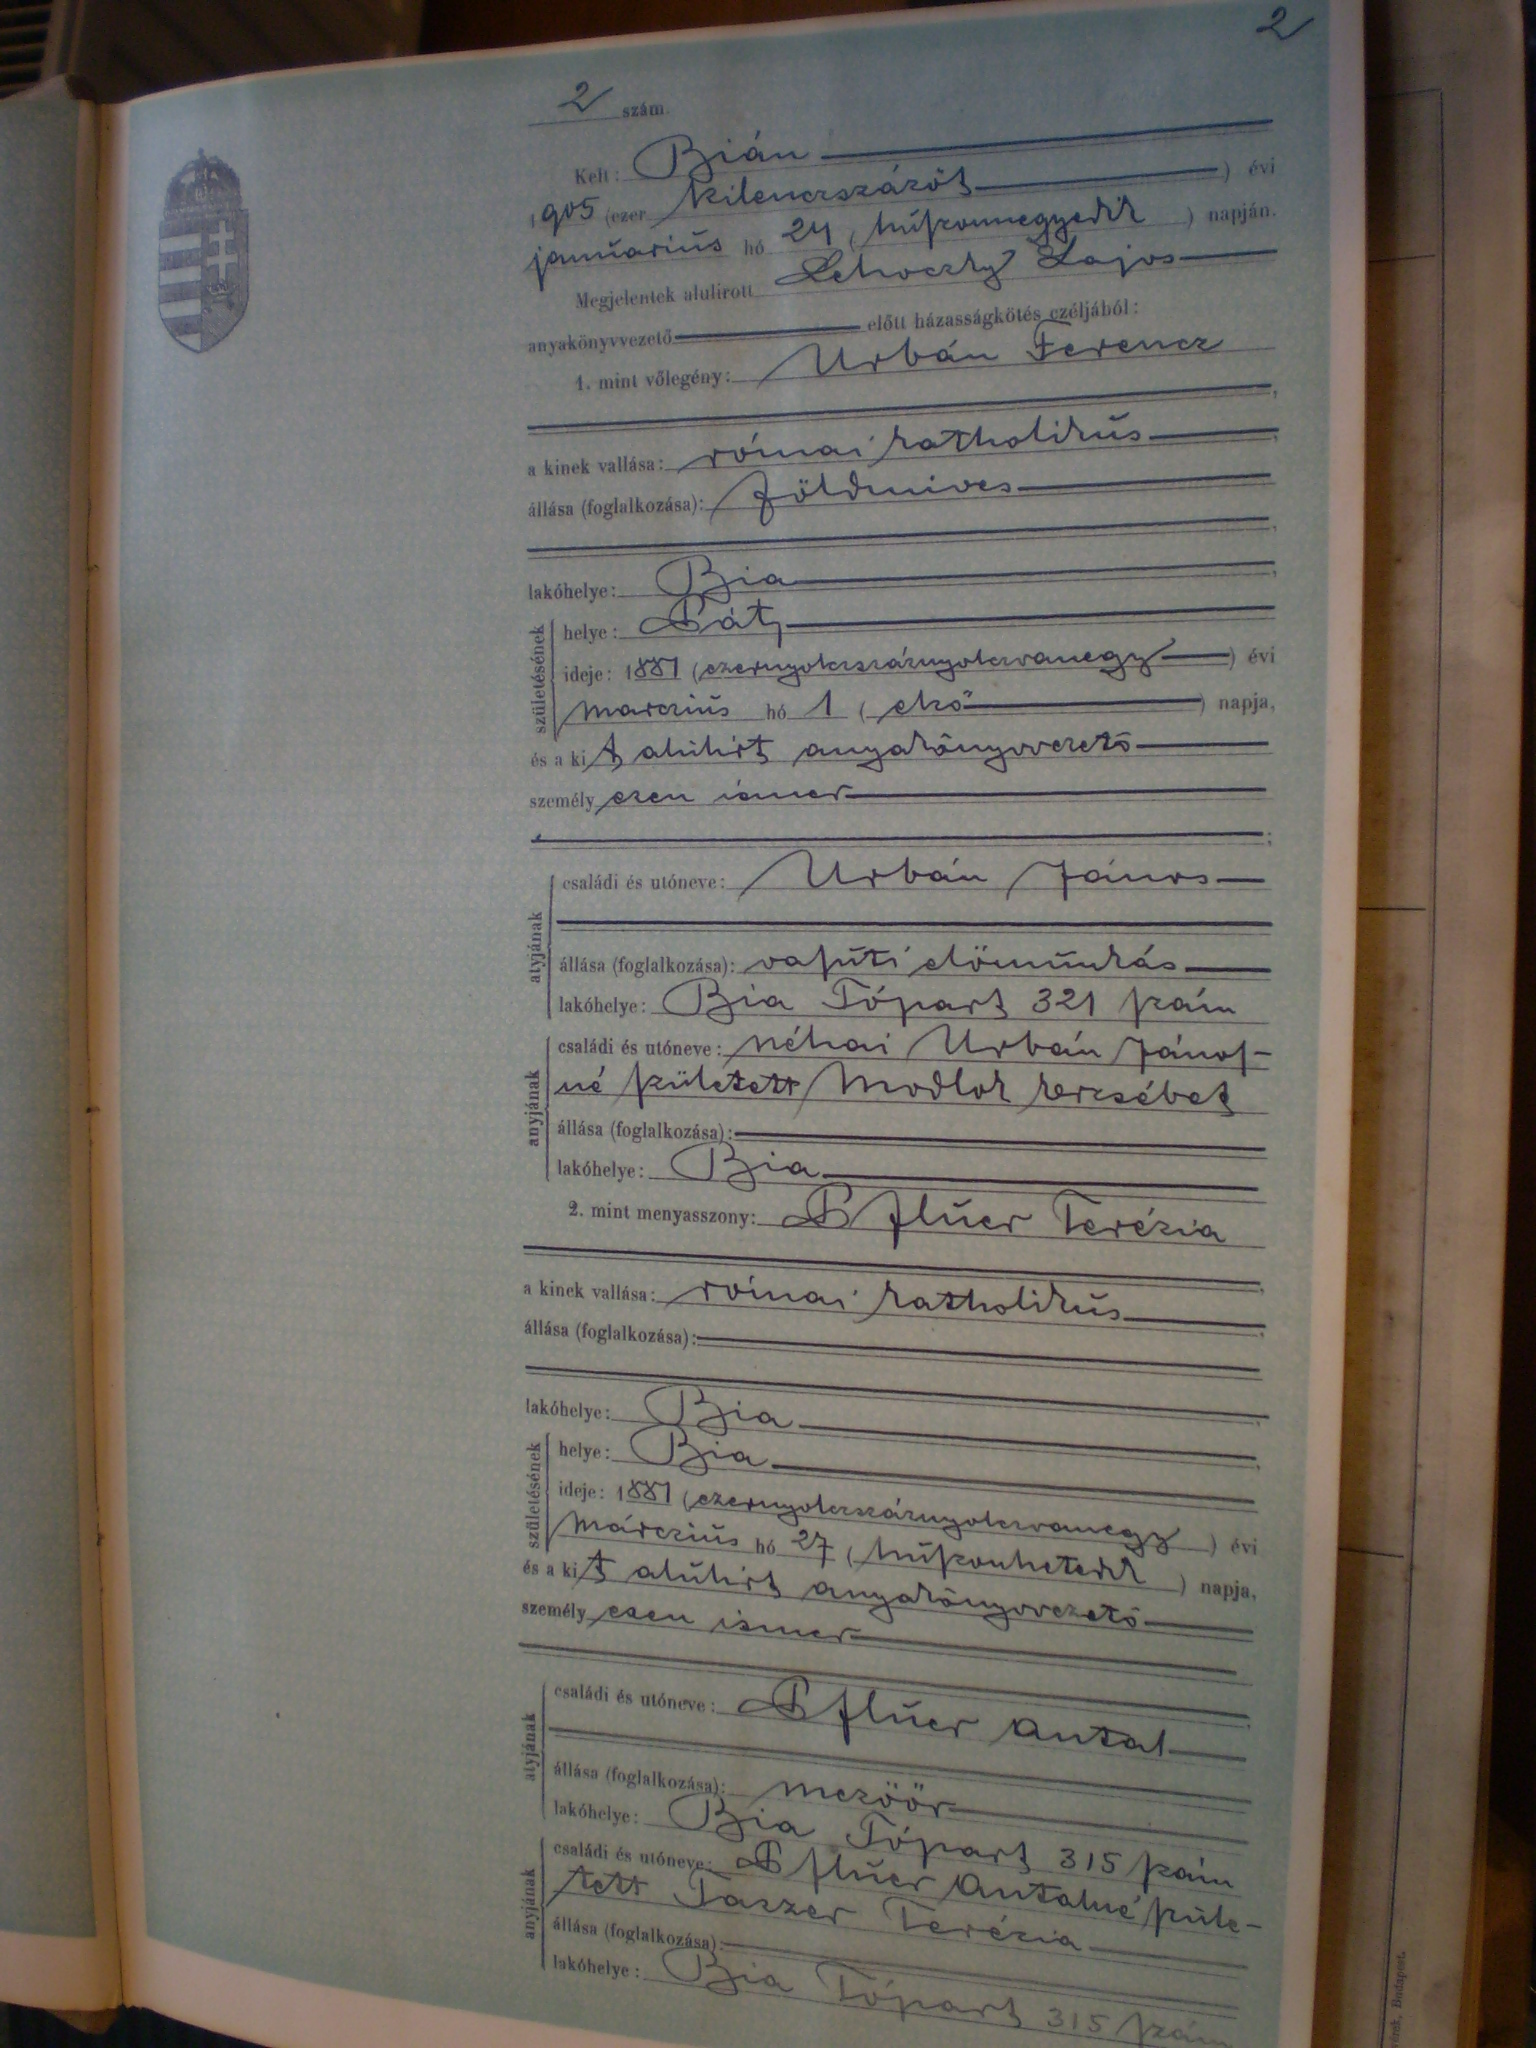 2
2 szám.
Kelt: Bián
1905 (ezer kilenczszázöt) évi
januárius hó 24 (huszonnegyedik) napján.
Megjelentek alulírott Lehoczky Lajos
anyakönyvvezető előtt házasságkötés czéljából:
1. mint vőlegény: Urbán Ferencz
a kinek vallása: római katholikus
állása (foglalkozása): földmives
lakóhelye: Bia
születésének
helye: Páty
ideje: 1881 (ezernyolczszáznyolczvanegy) évi
marczius hó 1 (első) napja,
és a kit alulirt anyakönyvvezető
személyesen ismer
;
atyjának
családi és utóneve: Urbán János
állása (foglalkozása): vasúti előmunkás
lakóhelye: Bia Tópart 321 szám
anyjának
családi és utóneve: néhai Urbán János-
né született Modlok Erzsébet
állása (foglalkozása):
lakóhelye: Bia
2. mint menyasszony: Pflúer Terézia
a kinek vallása: római katholikus
állása (foglalkozása):
lakóhelye: Bia
születésének
helye: Bia
ideje: 1881 (ezernyolczszáznyolczvanegy) évi
márczius hó 27 (huszonhetedik) napja,
és a kit alulirt anyakönyvvezető
személyesen ismer
atyjának
családi és utóneve: Pflúer Antal
állása (foglalkozása): mezőőr
lakóhelye: Bia Tópart 315 szám
anyjának
családi és utóneve: Pflúer Antalné szüle-
tett Taszer Terézia
állása (foglalkozása):
lakóhelye: Bia Tópart 315 szám
Budapest.